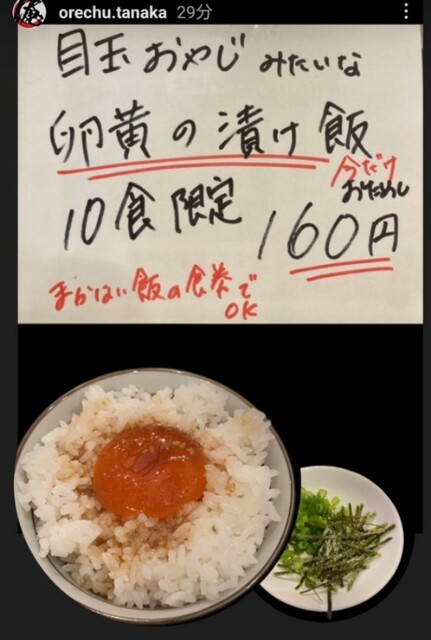 orechu.tanaka 29分
目玉おやじ みたいな
卵黄の漬け飯
今だけ
おためし
10食限定
160円
まかない飯の食券で
OK